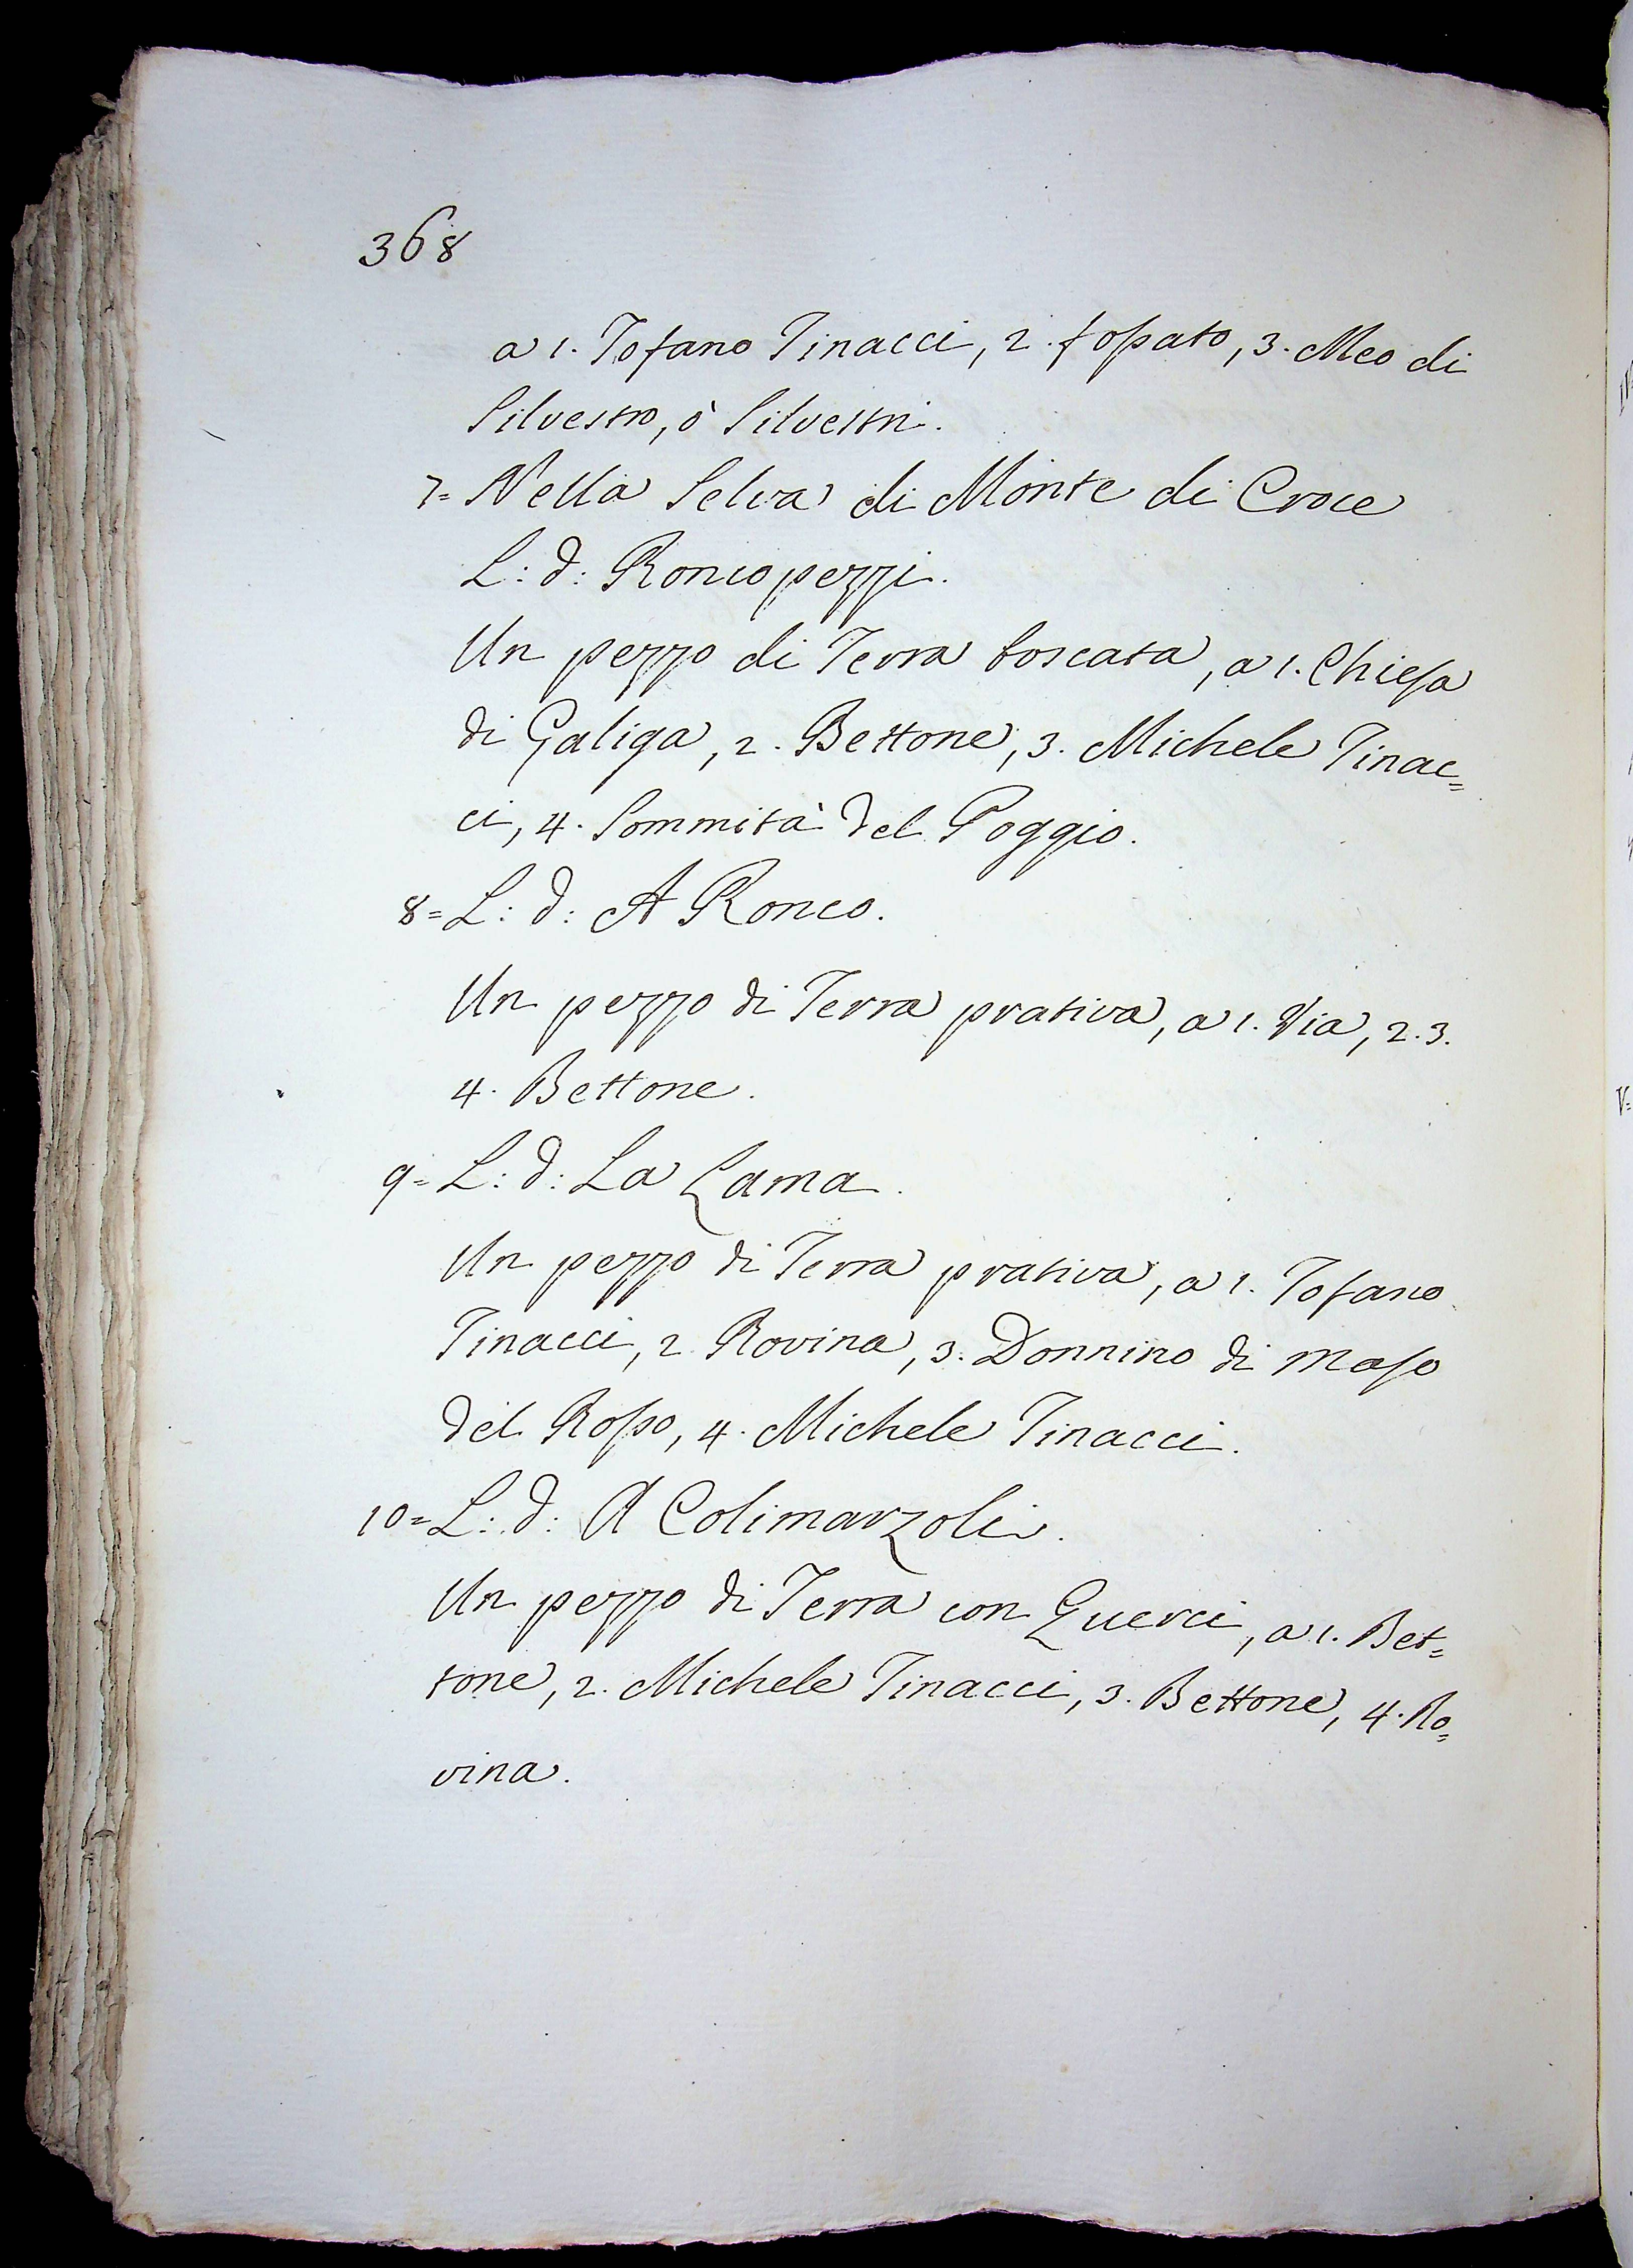 368
a 1. Tofano Tinacci, 2. fossato, 3. Meo di
Silvestro, ò Silvestri.
7= Nella Selva di Monte di Croce
L: d: Roncopezzi.
Un pezzo di Terra boscata, a 1. Chiesa
di Galiga, 2. Bettone, 3. Michele Tinac=
ci, 4. Sommità del Poggio.
8= L: d: A Ronco.
Un pezzo di Terra prativa, a 1. Via, 2. 3.
4. Bettone.
9= L: d: La Lama.
Un pezzo di Terra prativa, a 1. Tofano
Tinacci, 2. Rovina, 3. Donnino di Maso
del Rosso, 4. Michele Tinacci.
10= L: d: A Colimarzoli.
Un pezzo di Terra con Querci, a 1. Bet=
tone, 2. Michele Tinacci, 3. Bettone, 4. Ro=
vina.